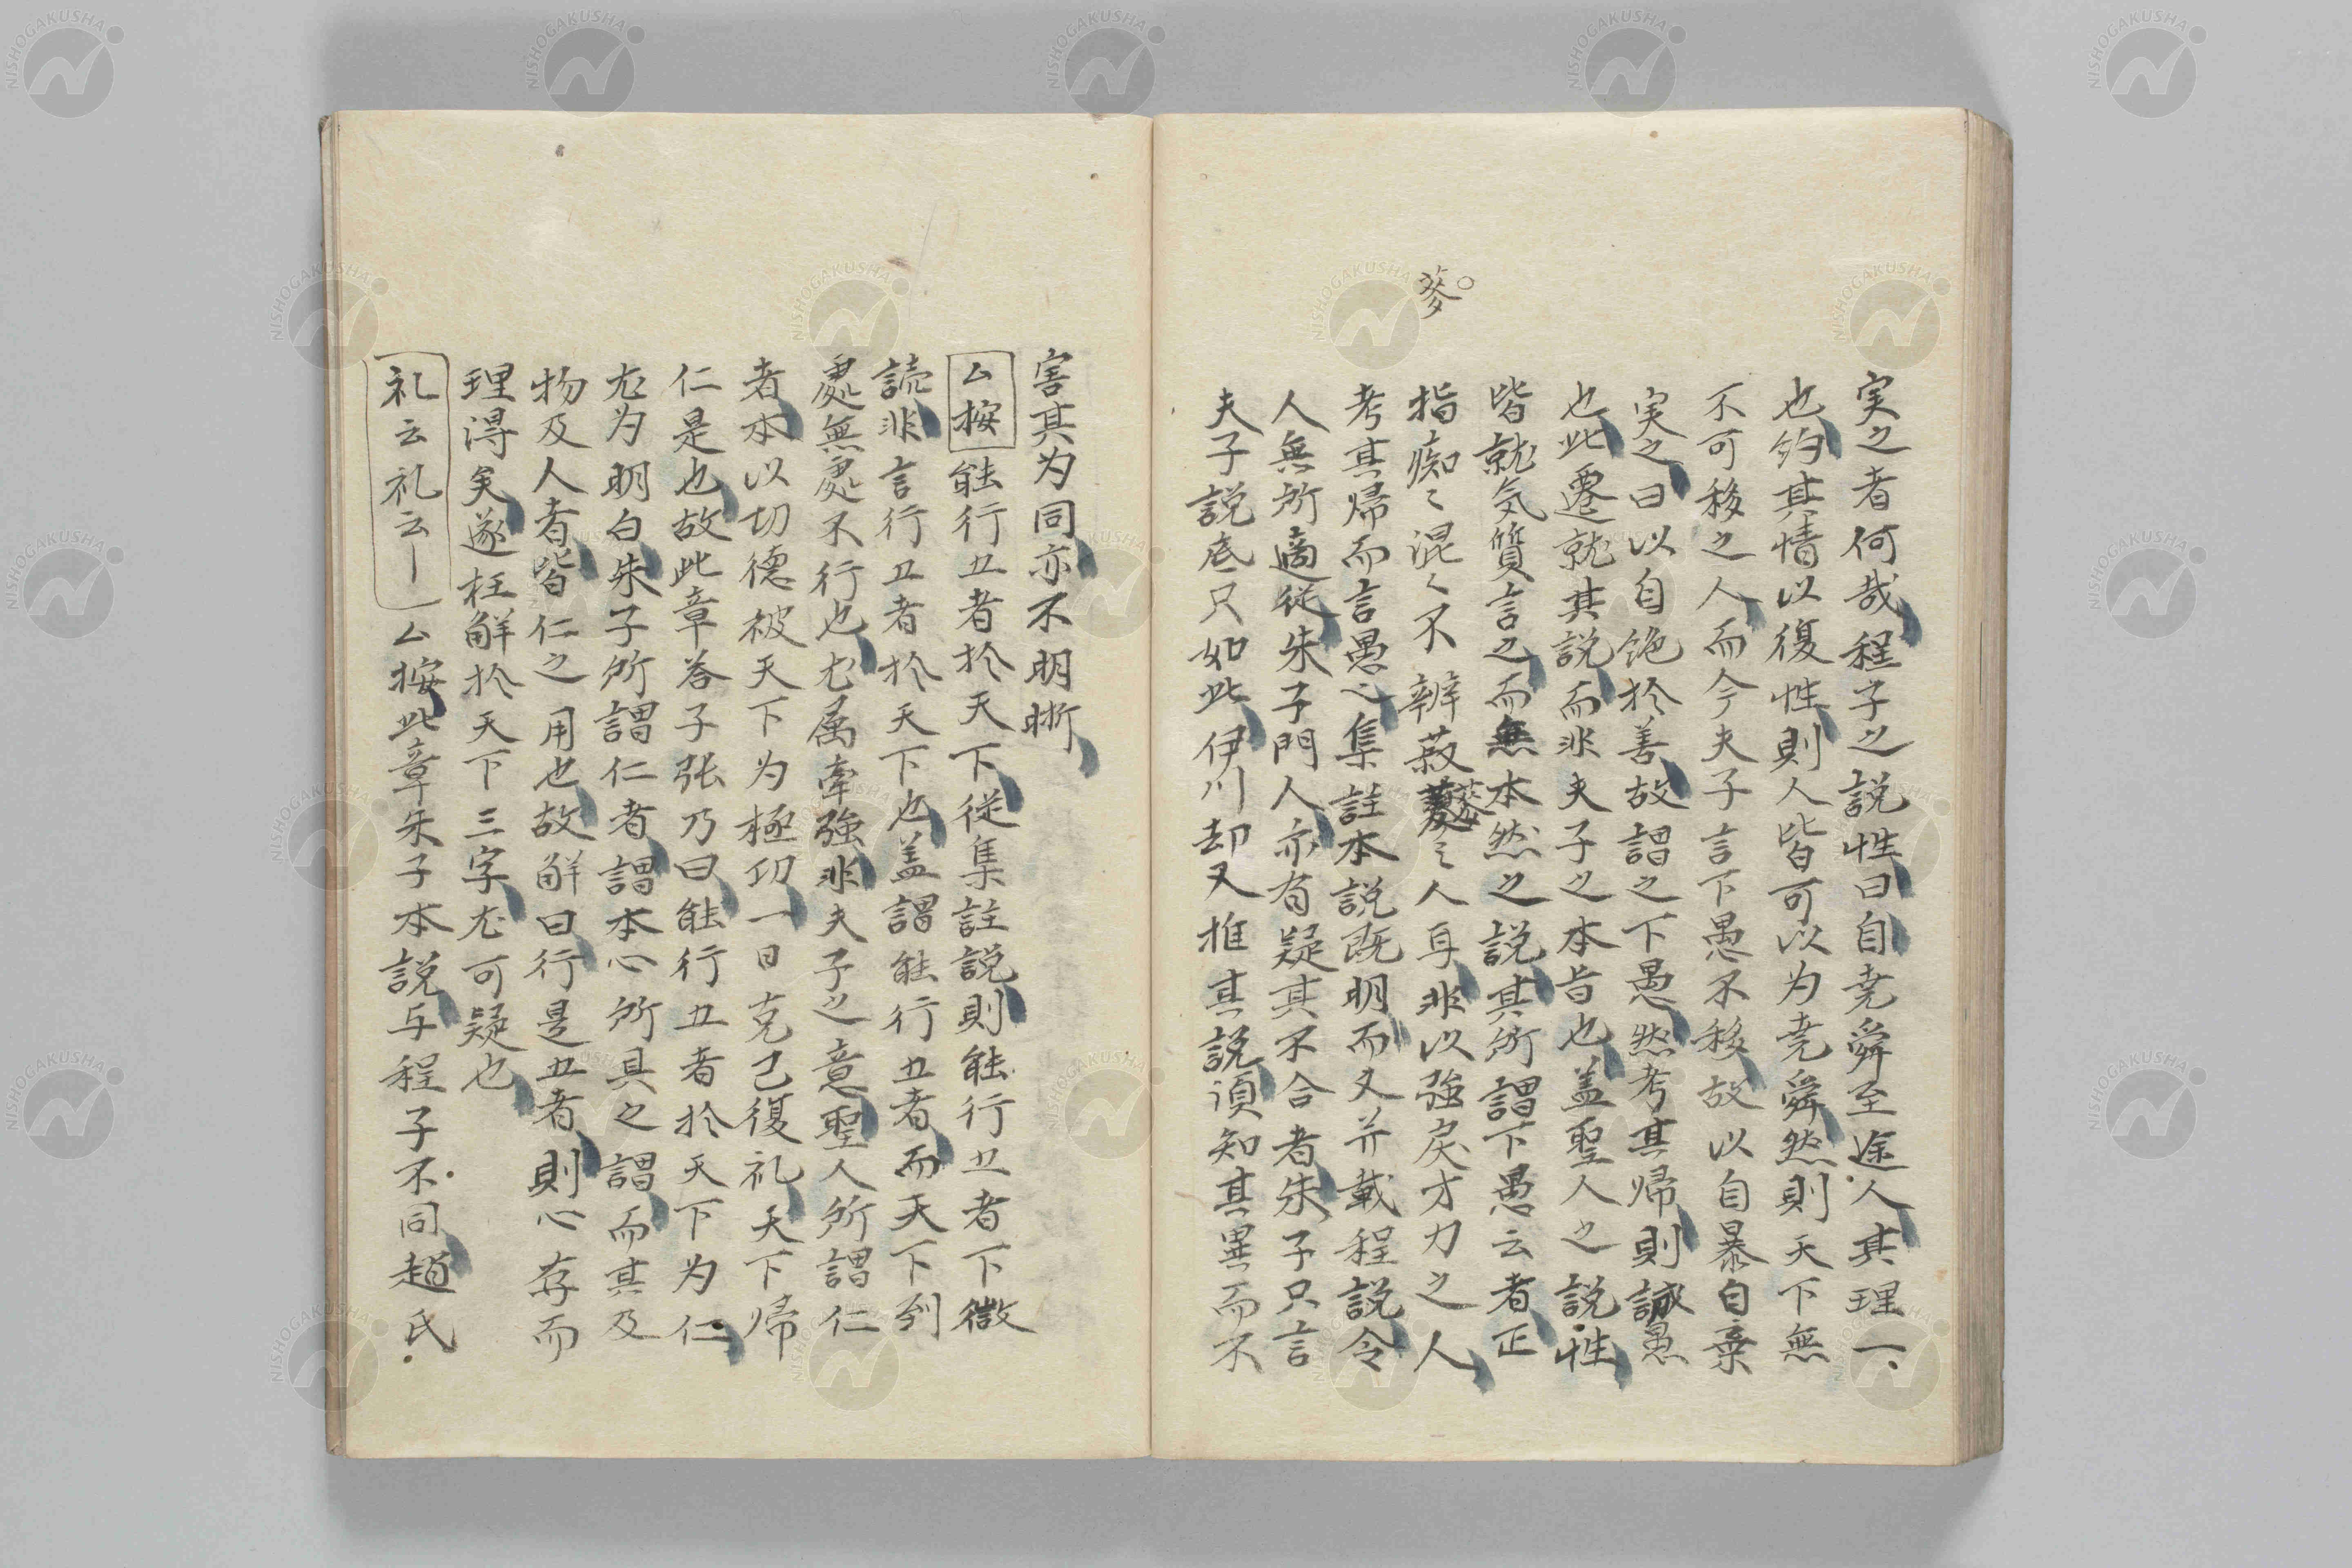 実之者何哉程子之説性曰自尭舜至途人其理一
也約其情以復性則人皆可以为尭舜然則天下無
不可移之人而今夫子言下愚不移故以自暴自棄
実之曰以自絶於善故謂之下愚然考其帰則誠愚
也此遷就其説而非夫子之本旨也盖聖人之説性
皆就気質言之而無本然之説其所謂下愚云者正
指痴〻混〻不辨菽麥之人耳非以強戻才力之人
麥
考其帰而言愚也集註本説既明而又并載程説令
人無所適從朱子門人亦有疑其不合者朱子只言
夫子説底只如此伊川却又推其説須知其異而不
害其为同亦不明晰
厶按能行五者於天下従集註説則能行五者下微
読非言行五者於天下也盖謂能行五者而天下到
處無處不行也尤属牽強非夫子之意聖人所謂仁
者本以切德被天下为極功一日克己復礼天下帰
仁是也故此章荅子张乃曰能行五者於天下为仁
尤为明白朱子所謂仁者謂本心所具之謂而其及
物及人者皆仁之用也故解曰行是五者則心存而
理得矣遂枉解於天下三字尤可疑也
礼云礼云｜厶按此章朱子本説与程子不同趙氏
NISHOGAKUSHA